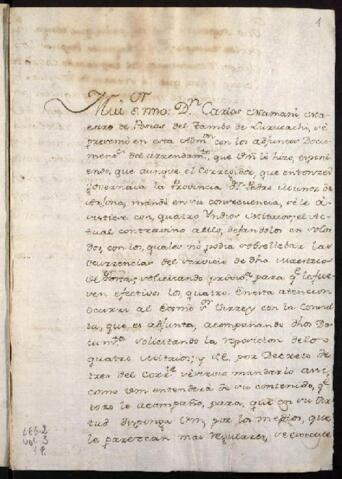 1
Mui S.or mio: D.n Carlos Mamani Ma-
estro de Postas del Tambo de
presento en esta Adm.on con los adjuntos Docu-
ment.s del arrendam.to, que se le hizo, exponi-
endo, que aunque el Corregidor, que entonces
governava la Provincia D.n Pedro Nunez de
Arjona, mandó en su consecuencia, se le a-
sistiere con quatro Yndios Mitaios; el ac-
tual contravino a ello, dejandolos en so-
dos, con los quales no podia sobrellebar las
ocurrencias del servicio de dho Maestro
de Postas; solicitando provid.a para q.e le fue-
sen efectivos los quatro. En esta atencion
ocurri al Exmo S.or Virrey con la Consul-
ta, que es adjunta, acompañando dhos Do-
cum.tos solicitando la reposicion de los
quatro Mitaios; y S.E. por Decreto de
tres del Corr.te se sirvió mandarlo assi,
como Vm entenderá de su contenido, q.e
le acompaño, para, que en su vir-
tud disponga Vm, por los medios, que
le parezcan mas regulares, se execute